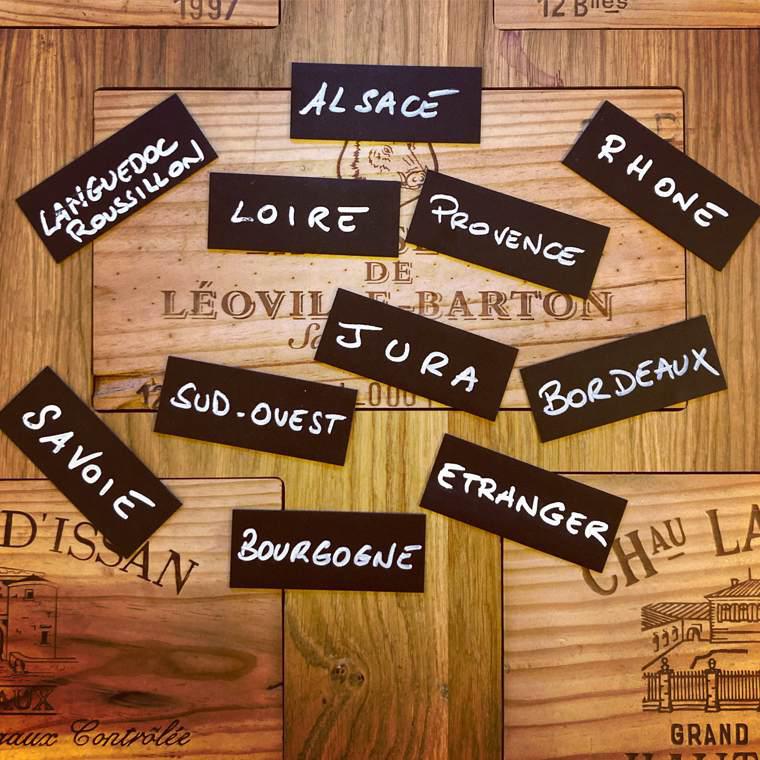 1997
12 Blles
ALSACE
LANGUEDOC
ROUSSILLON
RHONE
LOIRE
PROVENCE
DE
LÉOVIL E-BARTON
JURA
BORDEAUX
SUD-OUEST
SAVOIE
ETRANGER
BOURGOGNE
D'ISSAN
CHAU LA
AUX
aux Contrôlée
GRAND